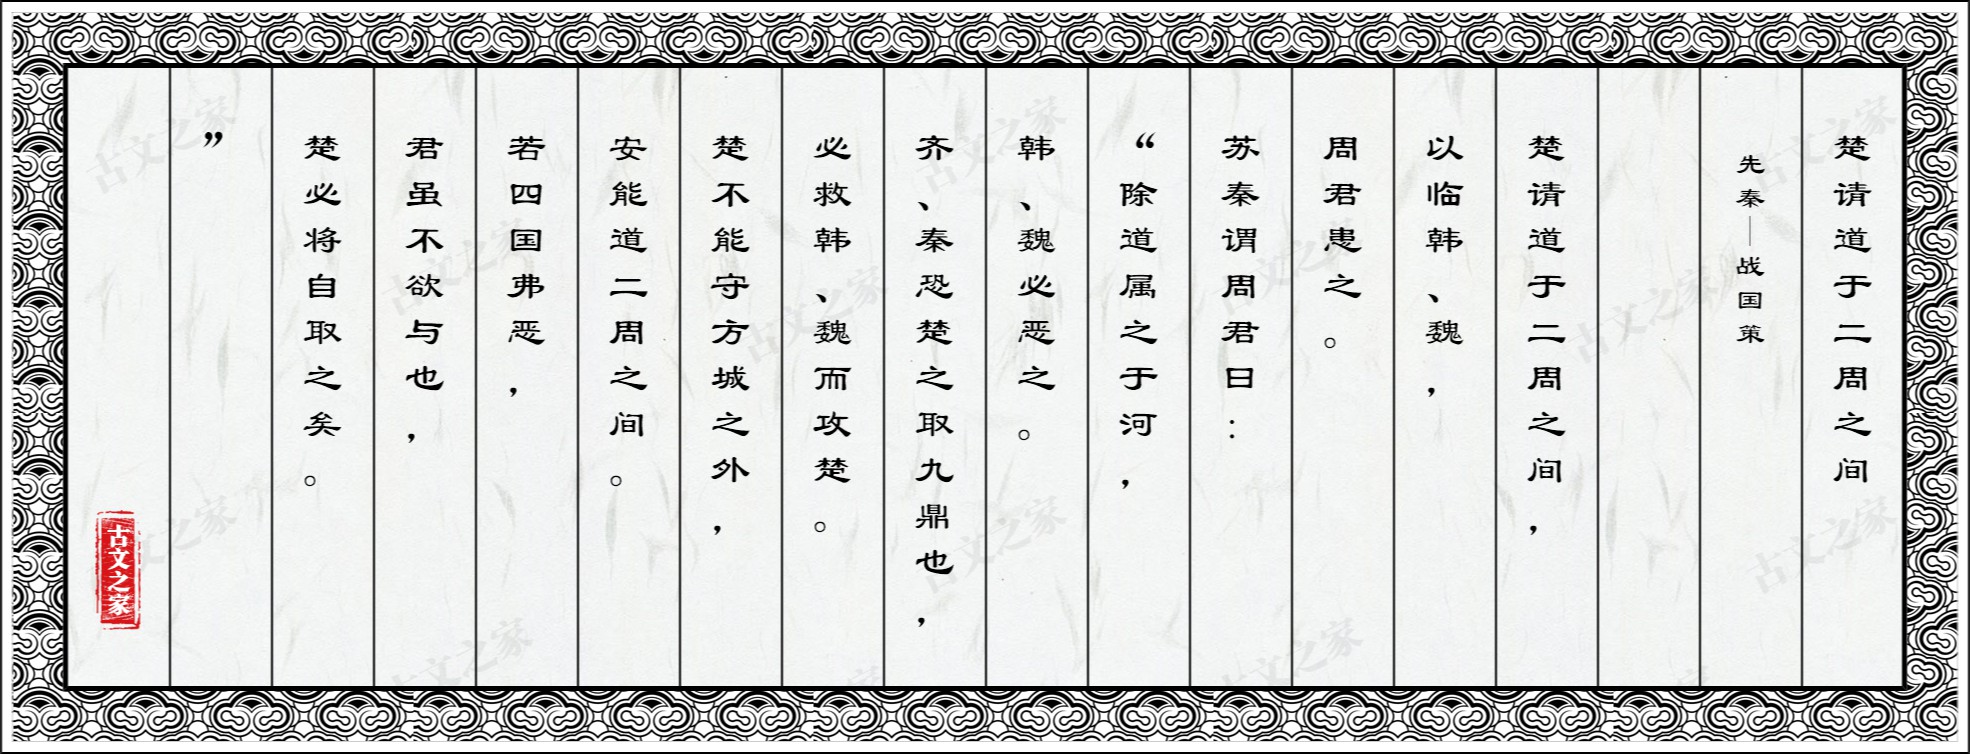 楚请道于二周之间
先秦—战国策
楚请道于二周之间，
以临韩、魏，
周君患之。
苏秦谓周君曰：
“除道属之于河，
韩、魏必恶之。
齐、秦恐楚之取九鼎也，
必救韩、魏而攻楚。
楚不能守方城之外，
安能道二周之间。
若四国弗恶，
君虽不欲与也，
楚必将自取之矣。
”
古文之家